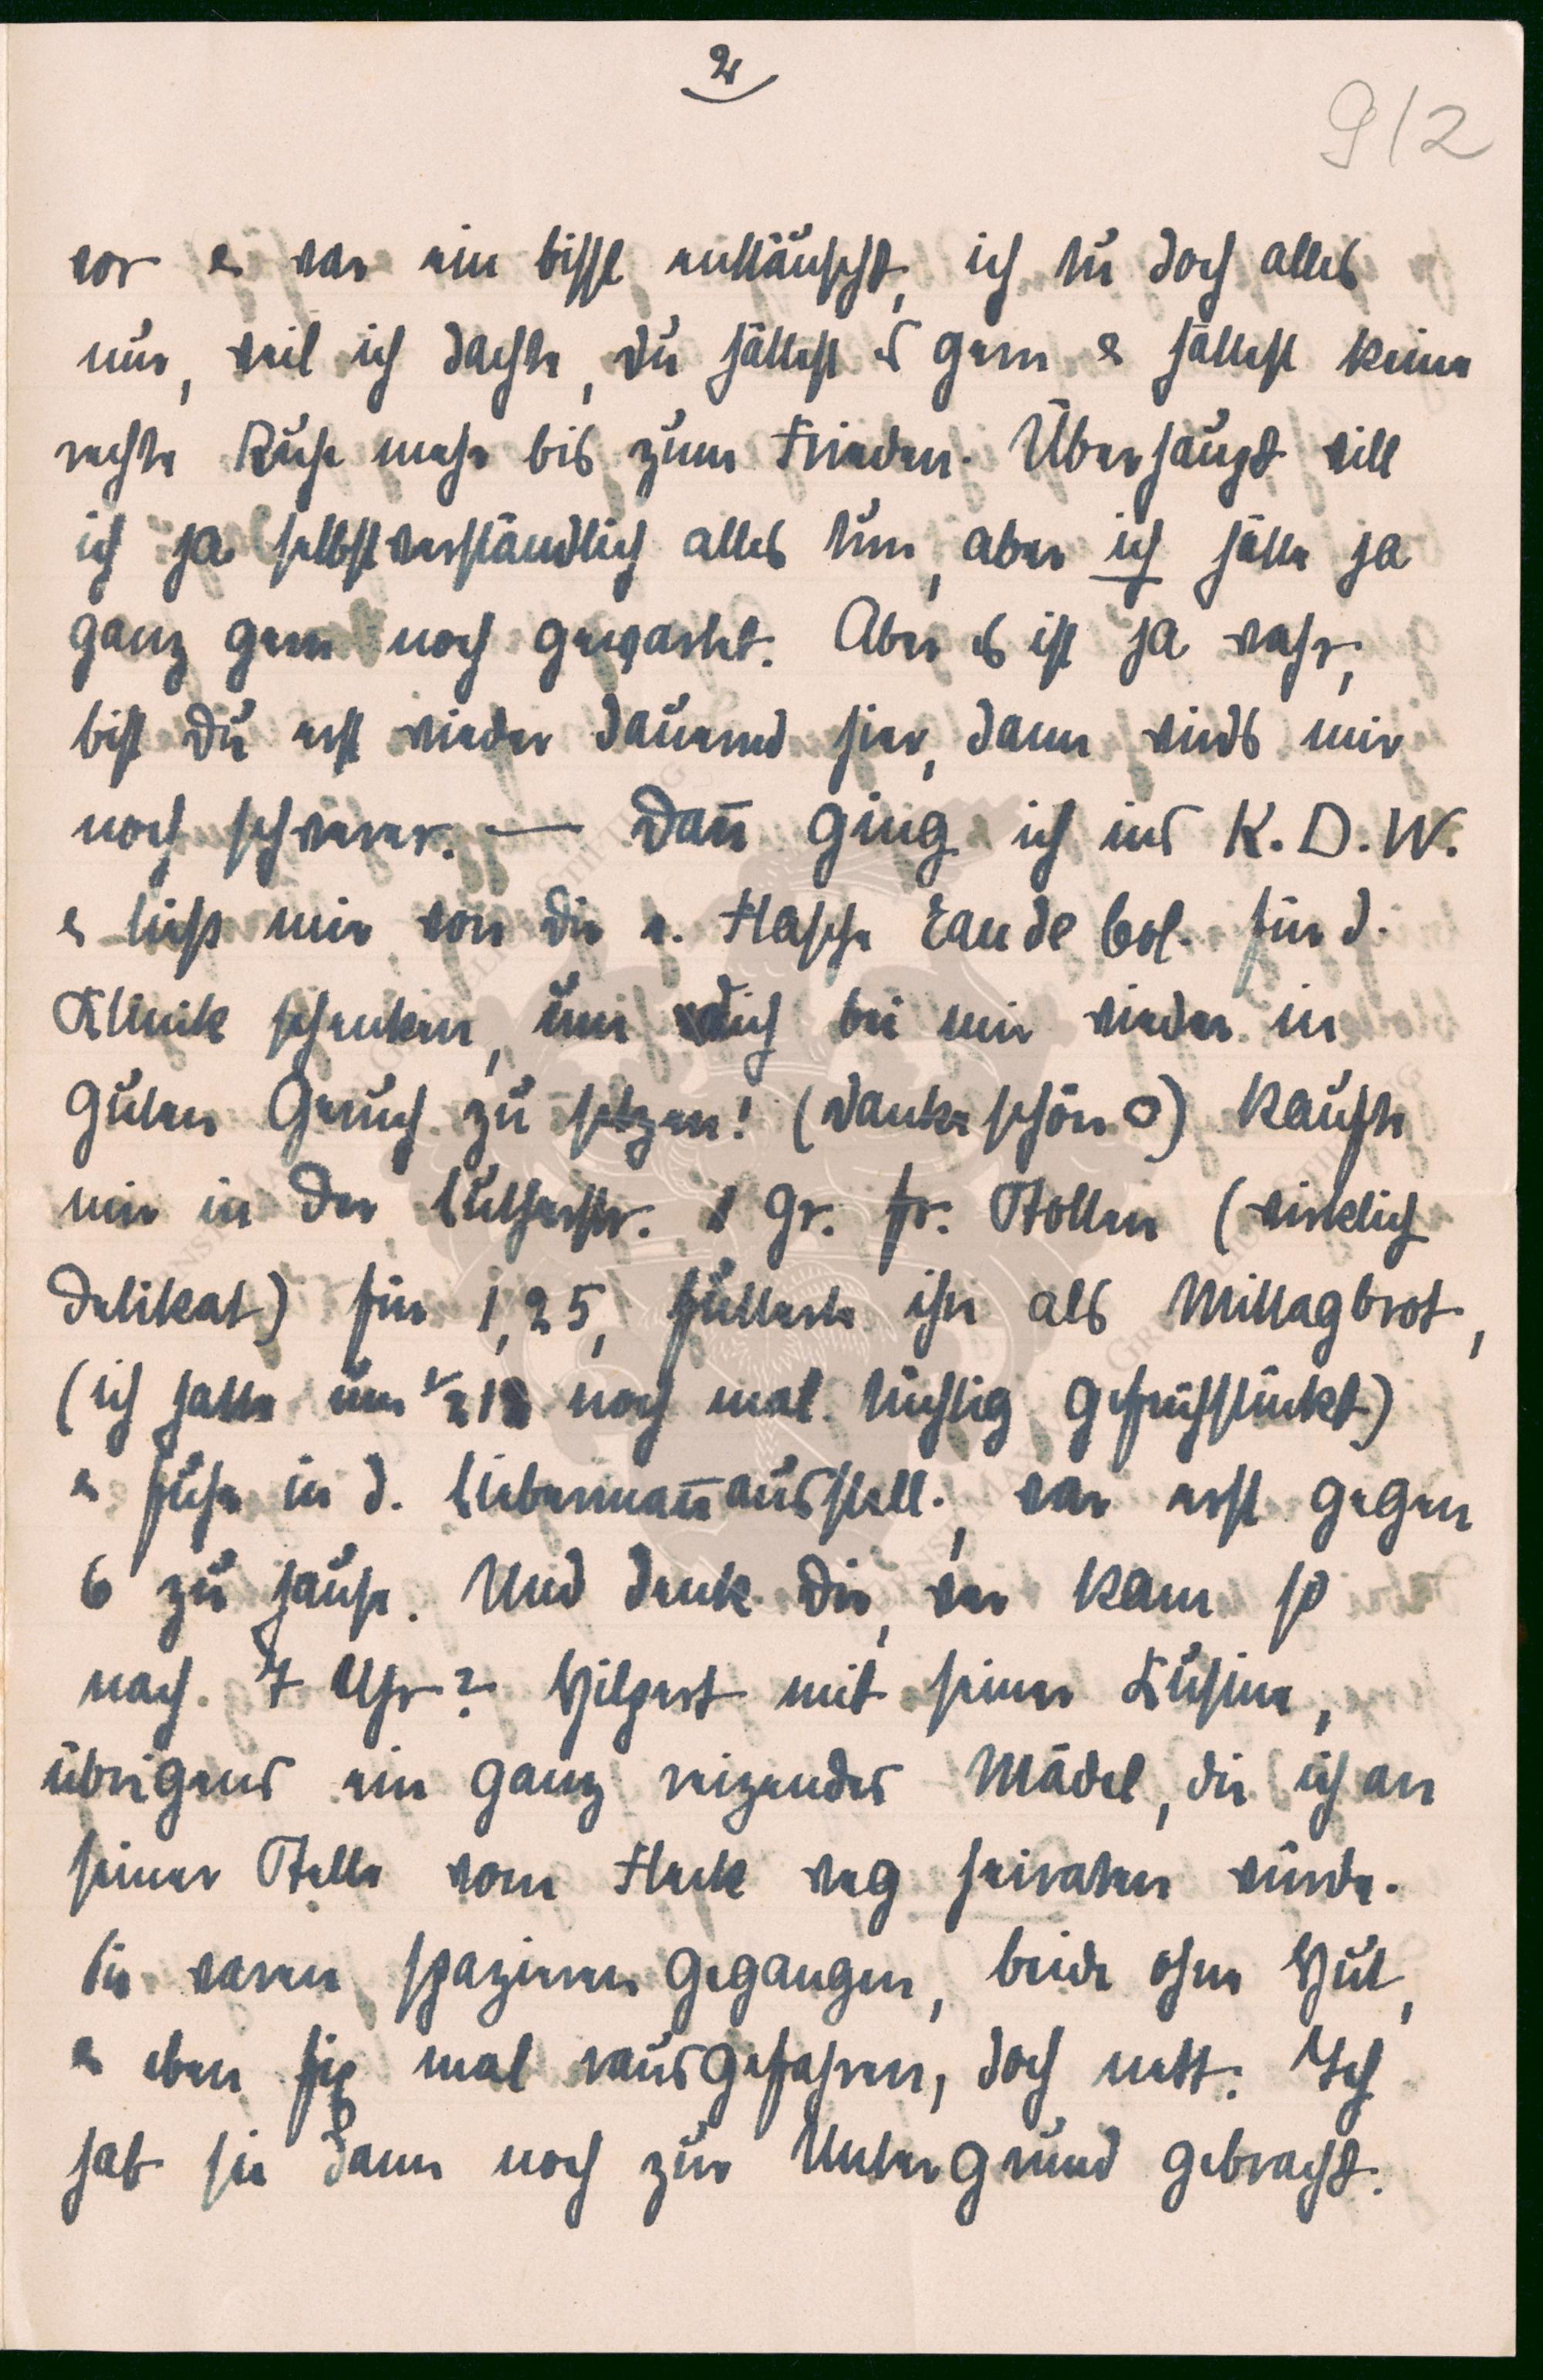 2
9/2
vor & war ein bissl enttäuscht, ich tu doch alles
nur, weil ich dachte, du hättest es gern & hättest keine
rechte Ruhe mehr bis zum Frieden. Überhaupt will
ich ja selbstverständlich alles tun, aber ich hätte ja
ganz gern noch gewartet. Aber es ist ja wahr,
bist Du erst wieder dauernd hier, dann wirds mir
noch schwerer. — Dan̄ ging ich ins K.D.W.
& liess mir von Dir e. Flasche Eau de Col. für d.
Klinik schenken, um dich bei mir wieder in
guten Geruch zu setzen! (Danke schön O) Kaufte
mir in der Lutherstr. 1 gr. fr. Stollen (wirklich
delikat) für 1,25, futterte ihn als Mittagbrot,
(ich hatte um 1/2 1 noch mal tüchtig gefrühstückt)
& fuhr in d. Lieberman̄ausstell., war erst gegen
6 zu hause. Und denk Dir, wer kam so
nach 7 Uhr? Hilpert mit seiner Kusine,
übrigens ein ganz reizendes Mädel, die ich an
seiner Stelle vom Fleck weg heiraten würde.
Sie waren spazieren gegangen, beide ohne Hut,
& eben fix mal rausgefahren, doch nett. Ich
hab sie dann noch zur Untergrund gebracht.